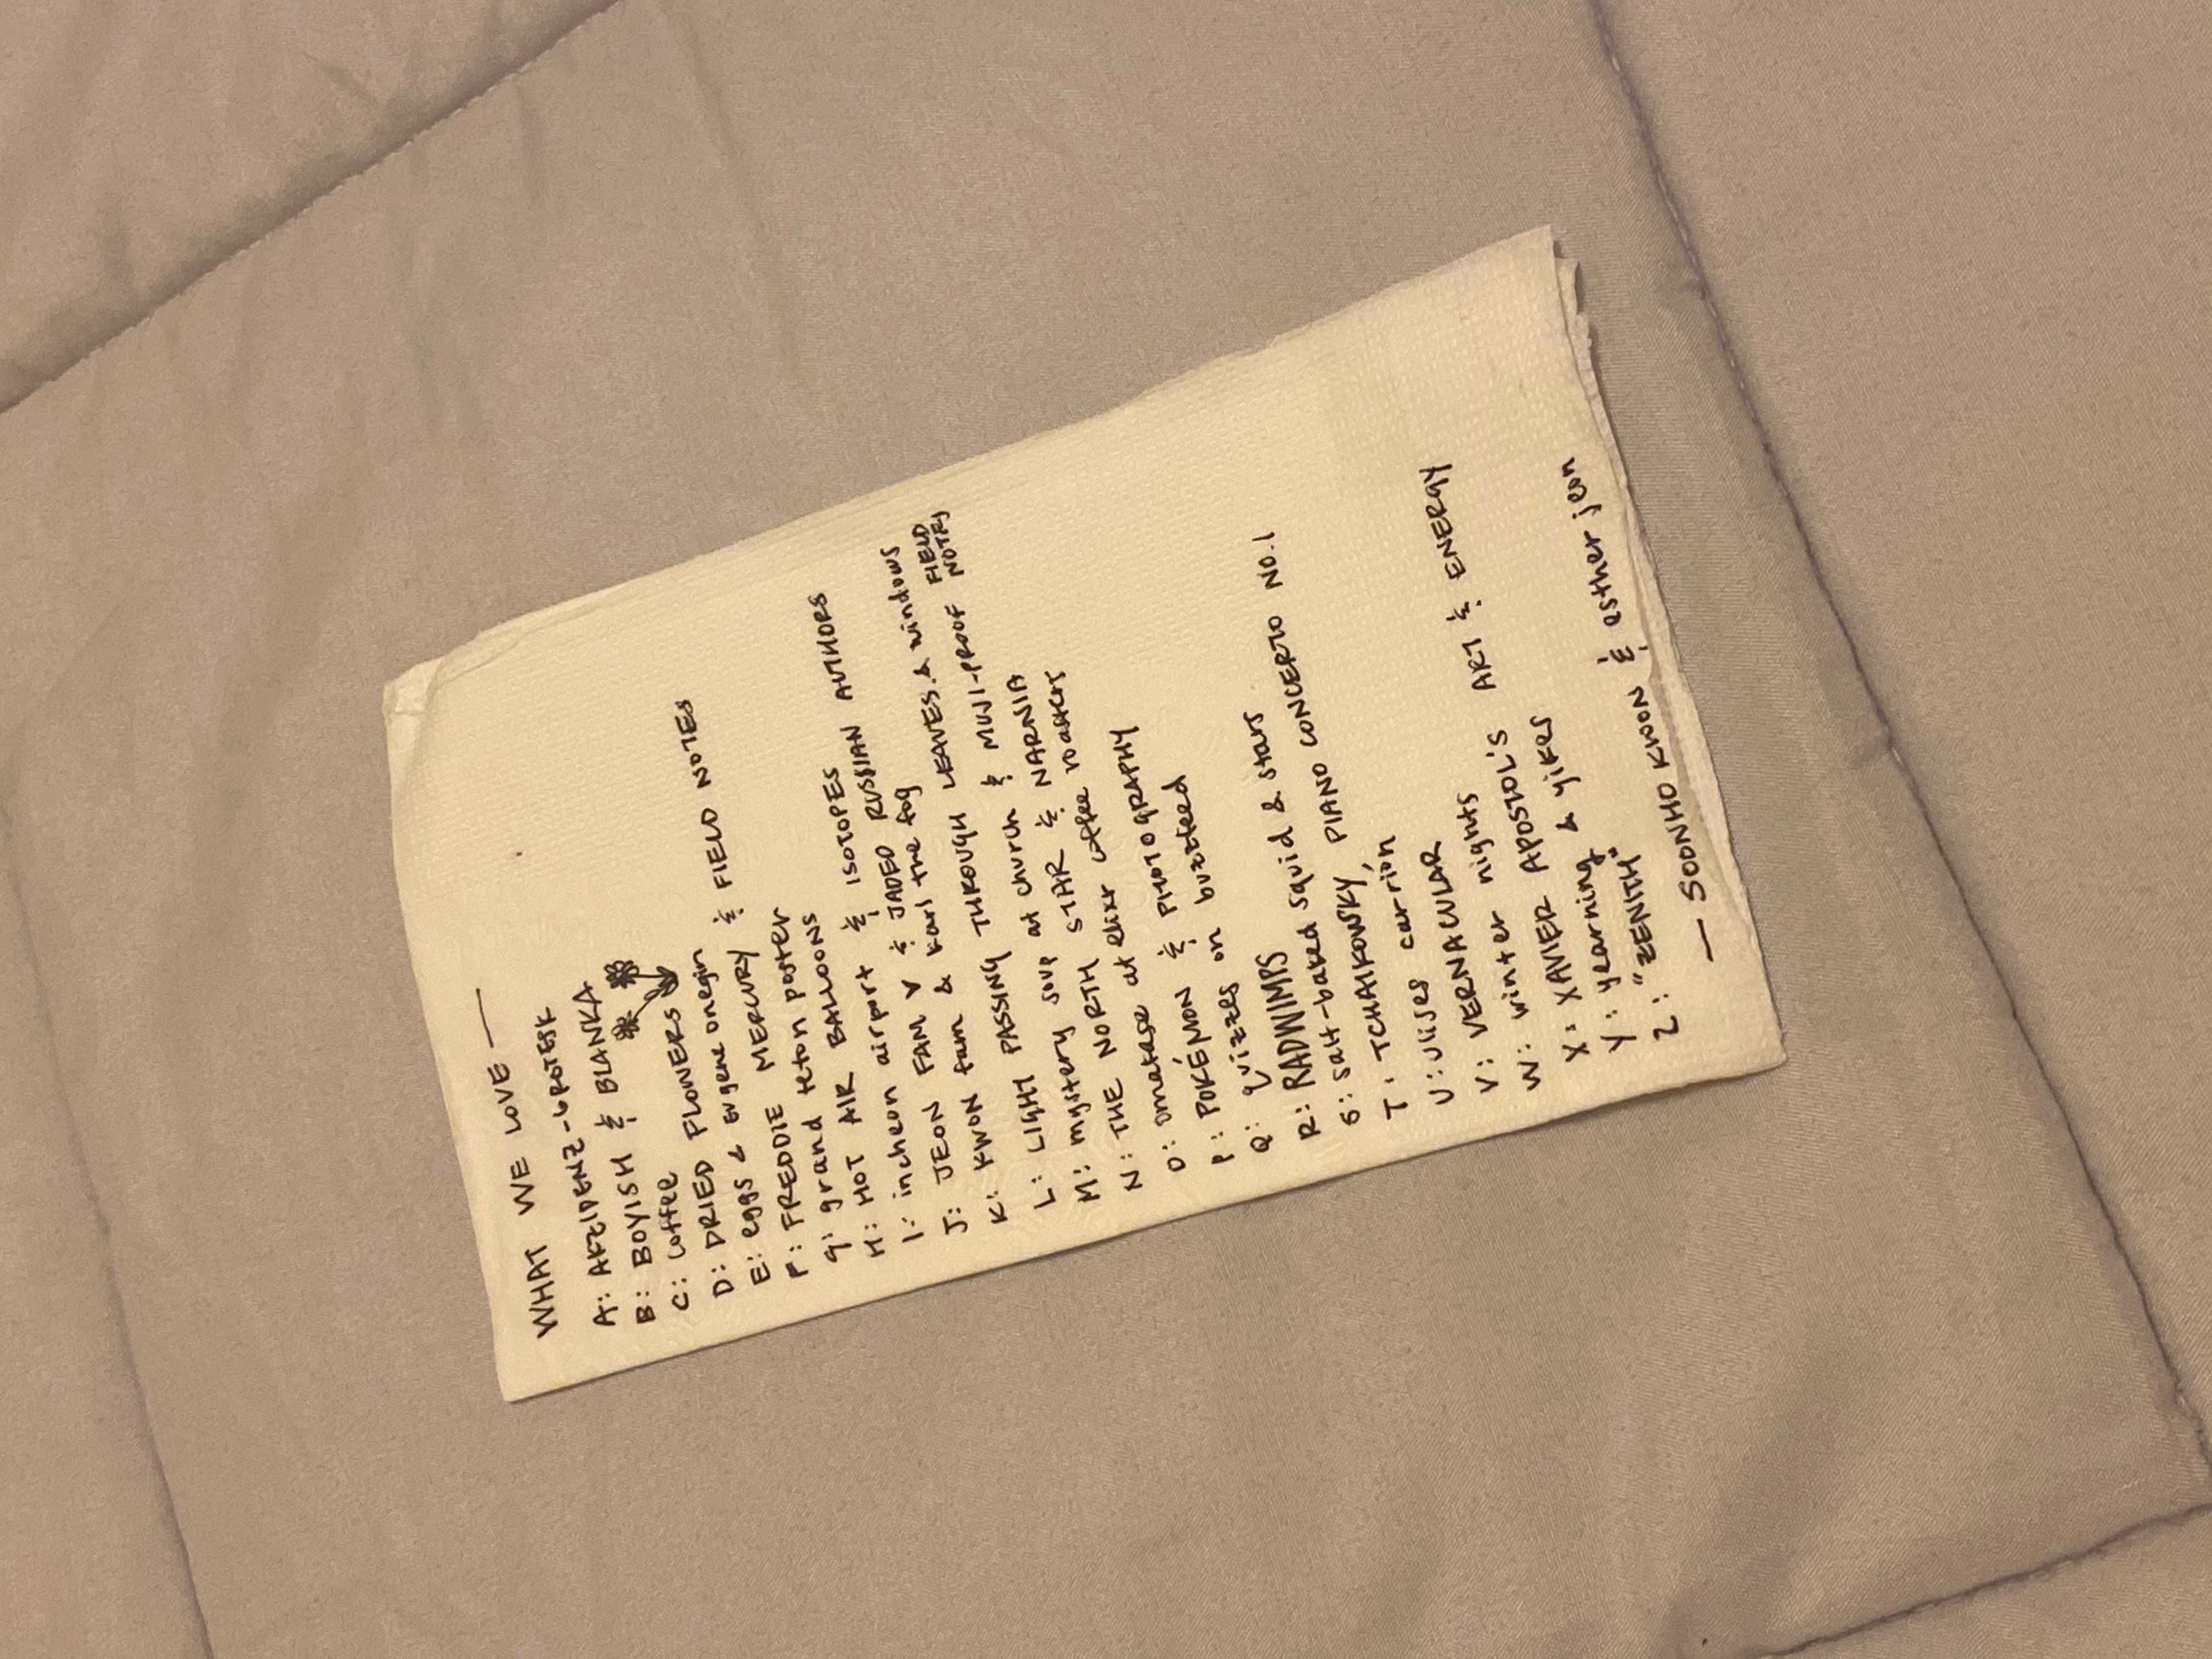 WHAT WE LOVE —
A: AKZIDENZ-GROTESK
B: BOYISH & BLANKA
C: coffee
D: DRIED FLOWERS
E: eggs & Evgene Onegin
F: FREDDIE MERCURY & FIELD NOTES
g: grand teton poster
H: HOT AIR BALLOONS
I: incheon airport & ISOTOPES
J: JEON FAM & JADED RUSSIAN AUTHORS
K: KWON fam & karl the fog
L: LIGHT PASSING THROUGH LEAVES & windows
M: mystery soup at church & MUJI-PROOF FIELD NOTES
N: THE NORTH STAR & NARNIA
O: omakase at elixr coffee roasters
P: POKÉMON & PHOTOGRAPHY
Q: quizzes on buzzfeed
R: RADWIMPS
S: salt-baked squid & stars
T: TCHAIKOWSKY, PIANO CONCERTO NO.1
U: ulises carrión
V: VERNACULAR
W: winter nights
X: XAVIER APOSTOL'S ART & ENERGY
Y: yearning & yikes
Z: "ZENITH"
— SOONHO KWON & esther jeon